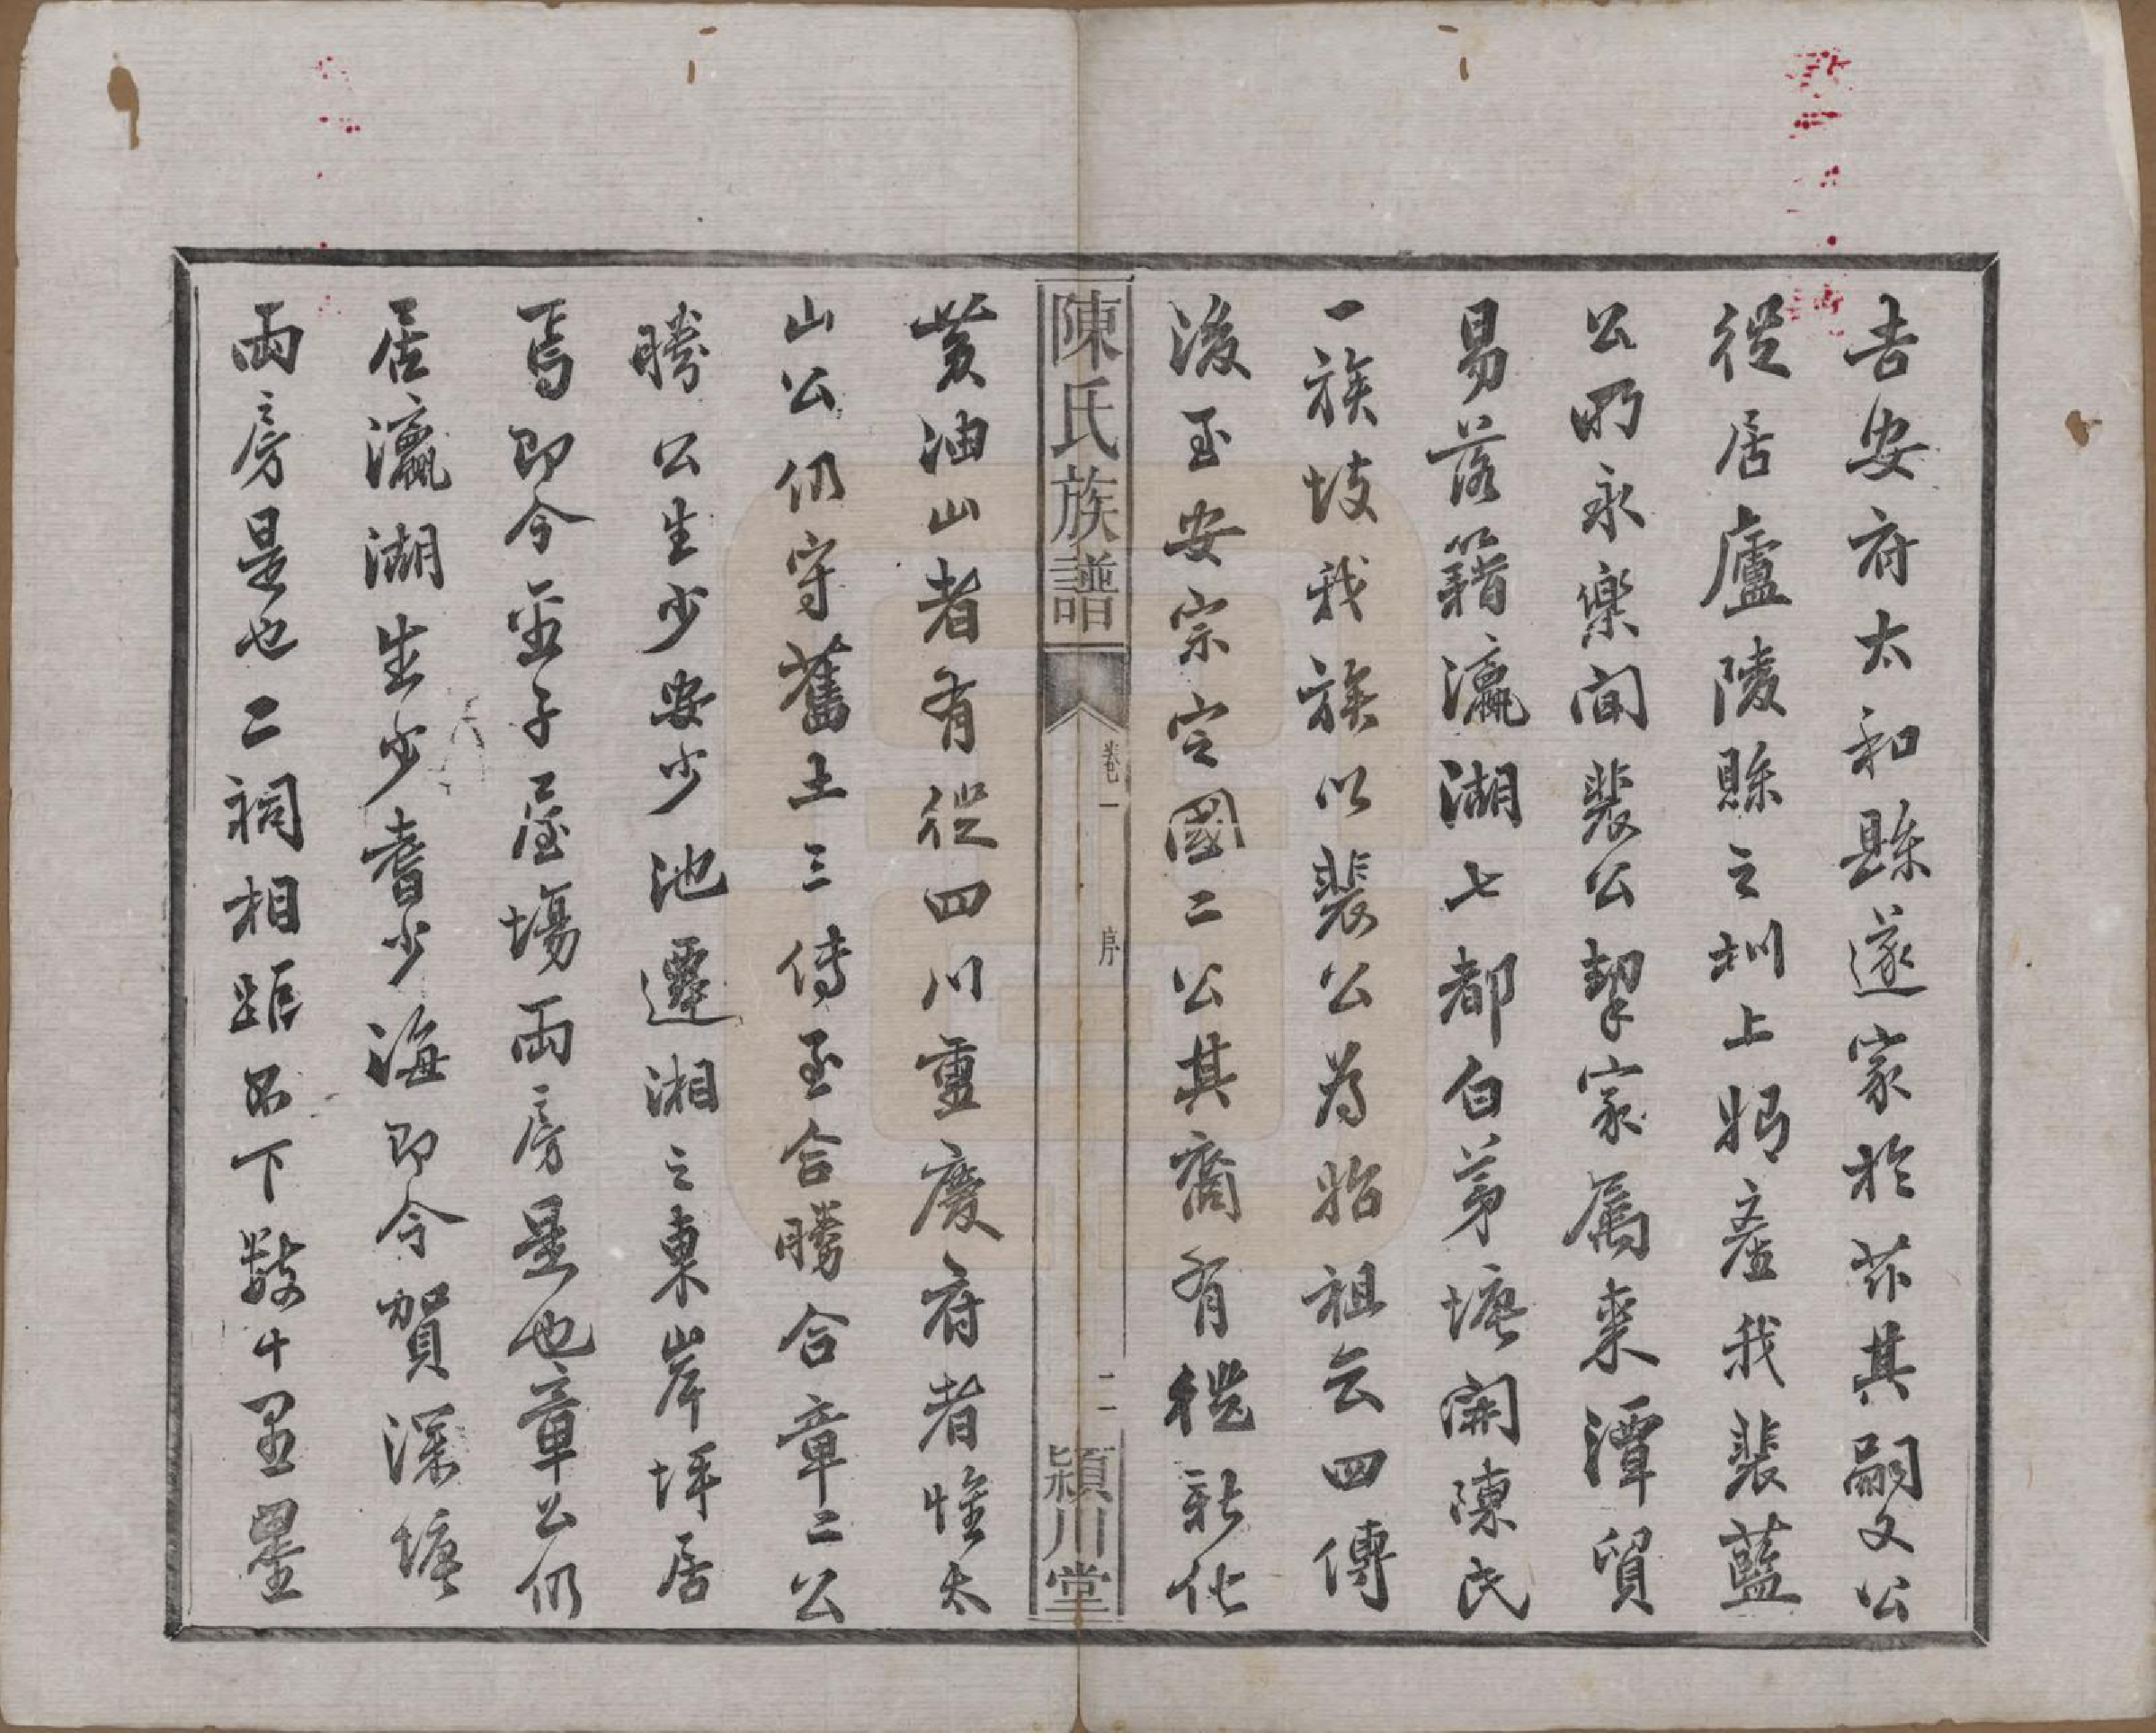 吉安府太和縣遂家於茲其嗣文公
從居廬陵縣之圳上坞產我裴藍
公明永樂間裴公挈家屬來潭貿
易落籍瀛湖七都白茅塘開陳氏
一族故我族以裴公為始祖云四傳
後至安宗定國二公其裔有從新化
陳氏族譜
卷一
序
二
潁川堂
黃油山者有從四川重慶府者惟太
山公仍守舊土三傳至合騰合章二公
騰公生少安少池遷湘之東岸坪居
焉即今亞子屋場兩房是也章公仍
居瀛湖生少耆少海即今賀深塘
兩房是也二祠相距不下數十里星